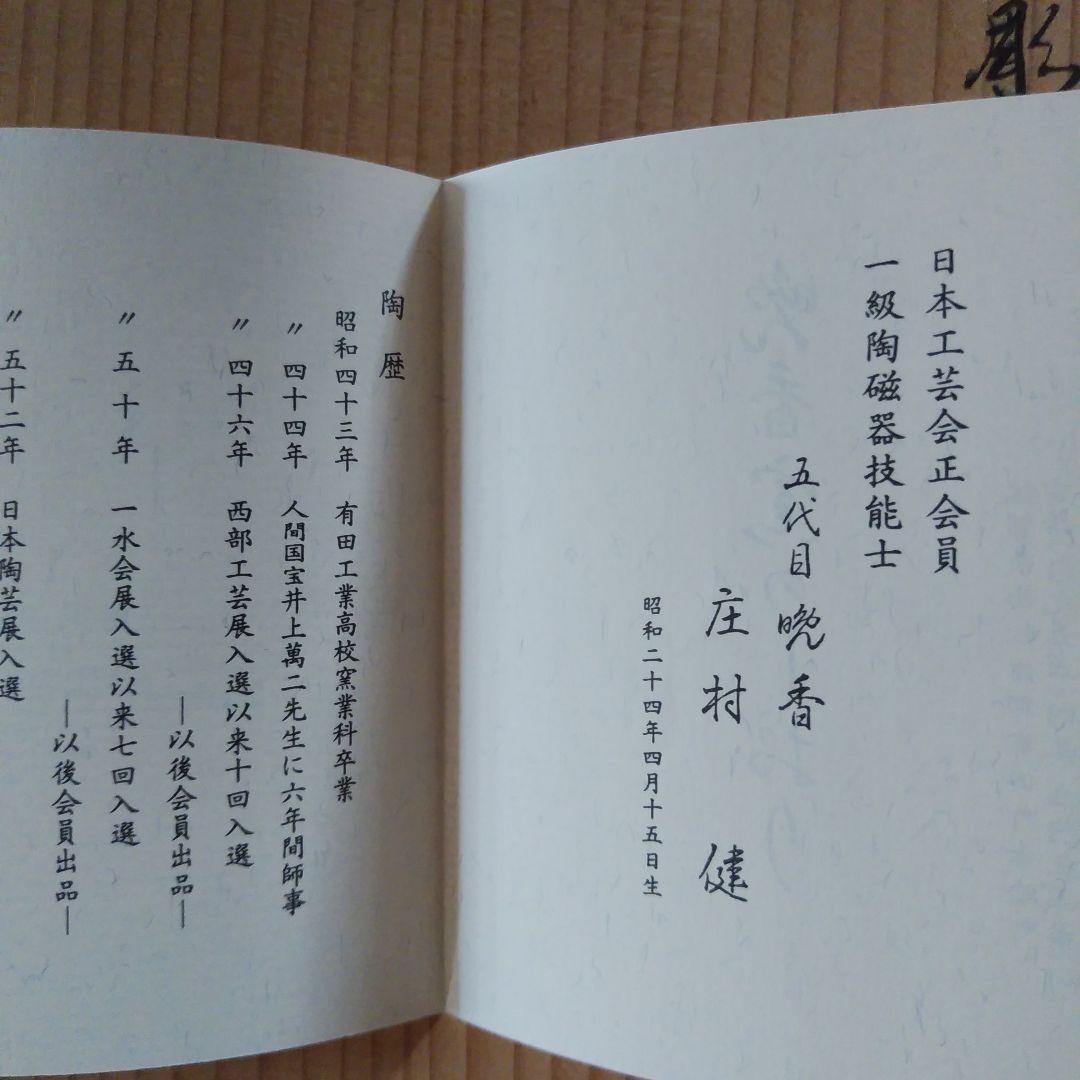 彫
日本工芸会正会員
一級陶磁器技能士
五代目 晩香
庄村 健
昭和二十四年四月十五日生
陶歴
昭和四十三年 有田工業高校窯業科卒業
〃 四十四年 人間国宝井上萬二先生に六年間師事
〃 四十六年 西部工芸展入選以来十回入選
―以後会員出品―
〃 五十年 一水会展入選以来七回入選
―以後会員出品―
〃 五十二年 日本陶芸展入選